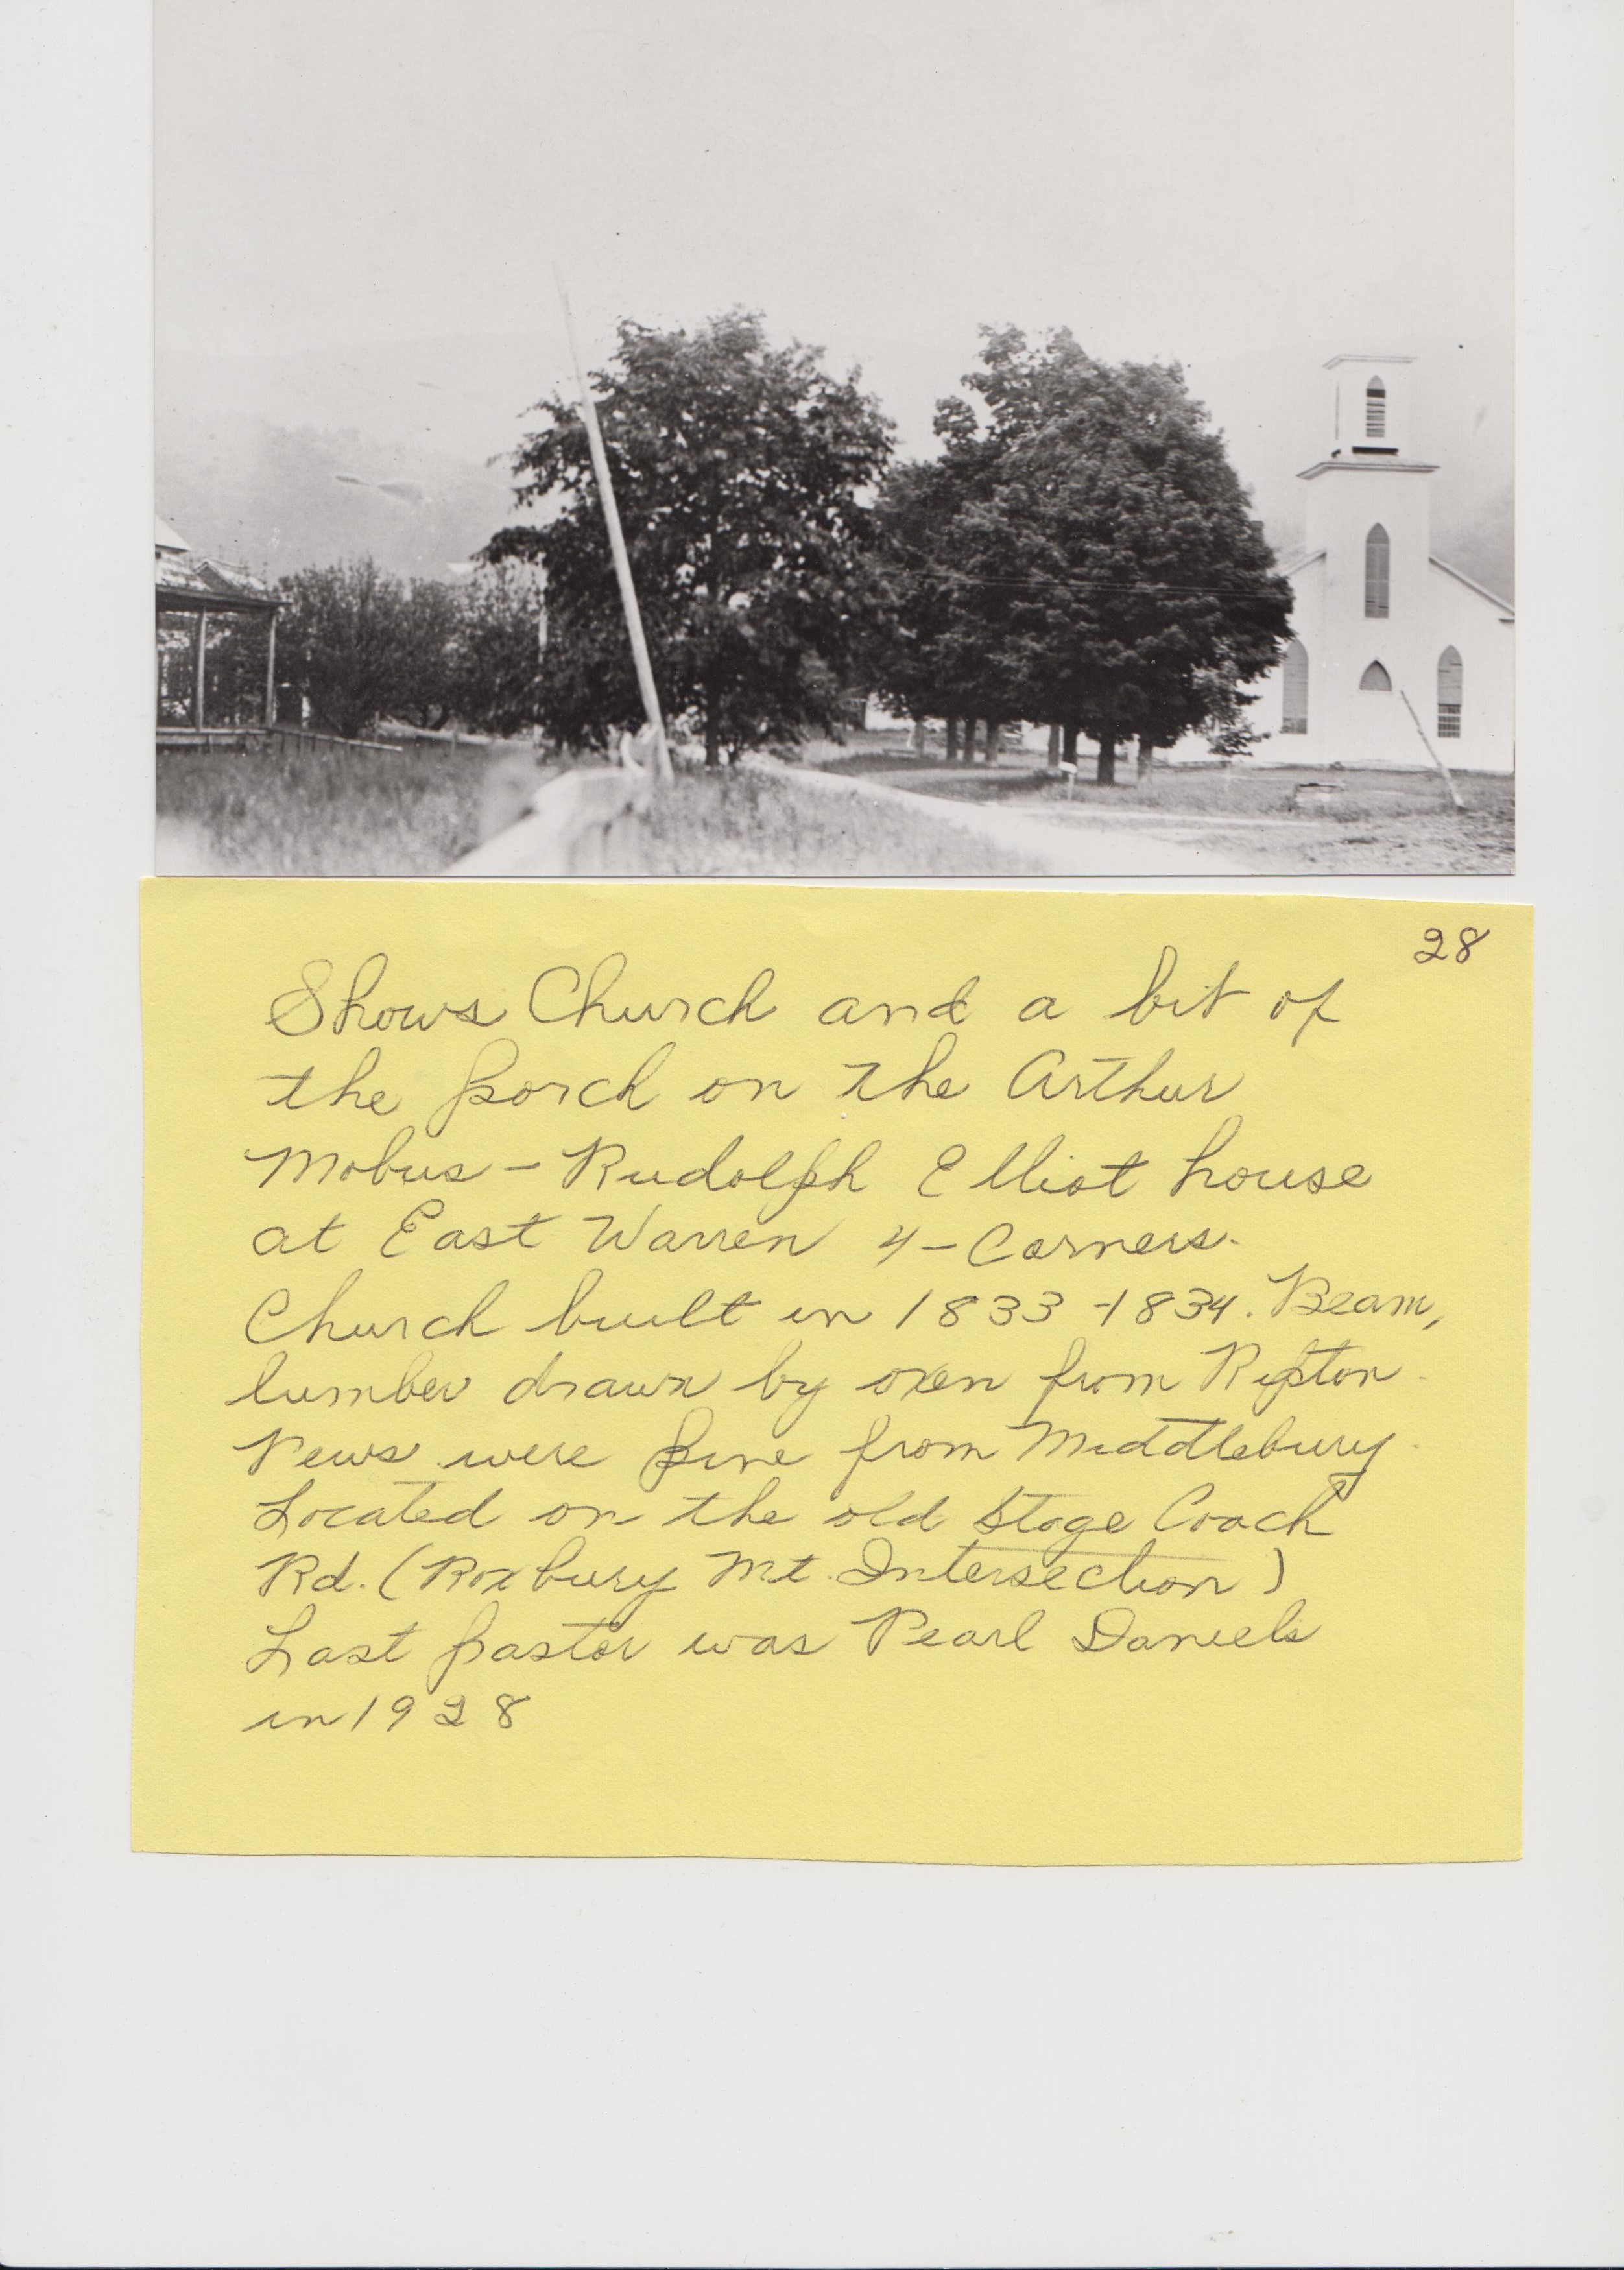 28
Shows Church and a bit of
the porch on the Arthur
Mobus - Rudolph Elliot house
at East Warren 4-Corners.
Church built in 1833-1834. Beam,
lumber drawn by oxen from Ripton.
Pews were pine from Middlebury.
Located on the old Stage Coach
Rd. (Roxbury Mt. Intersection)
Last pastor was Pearl Daniels
in 1928